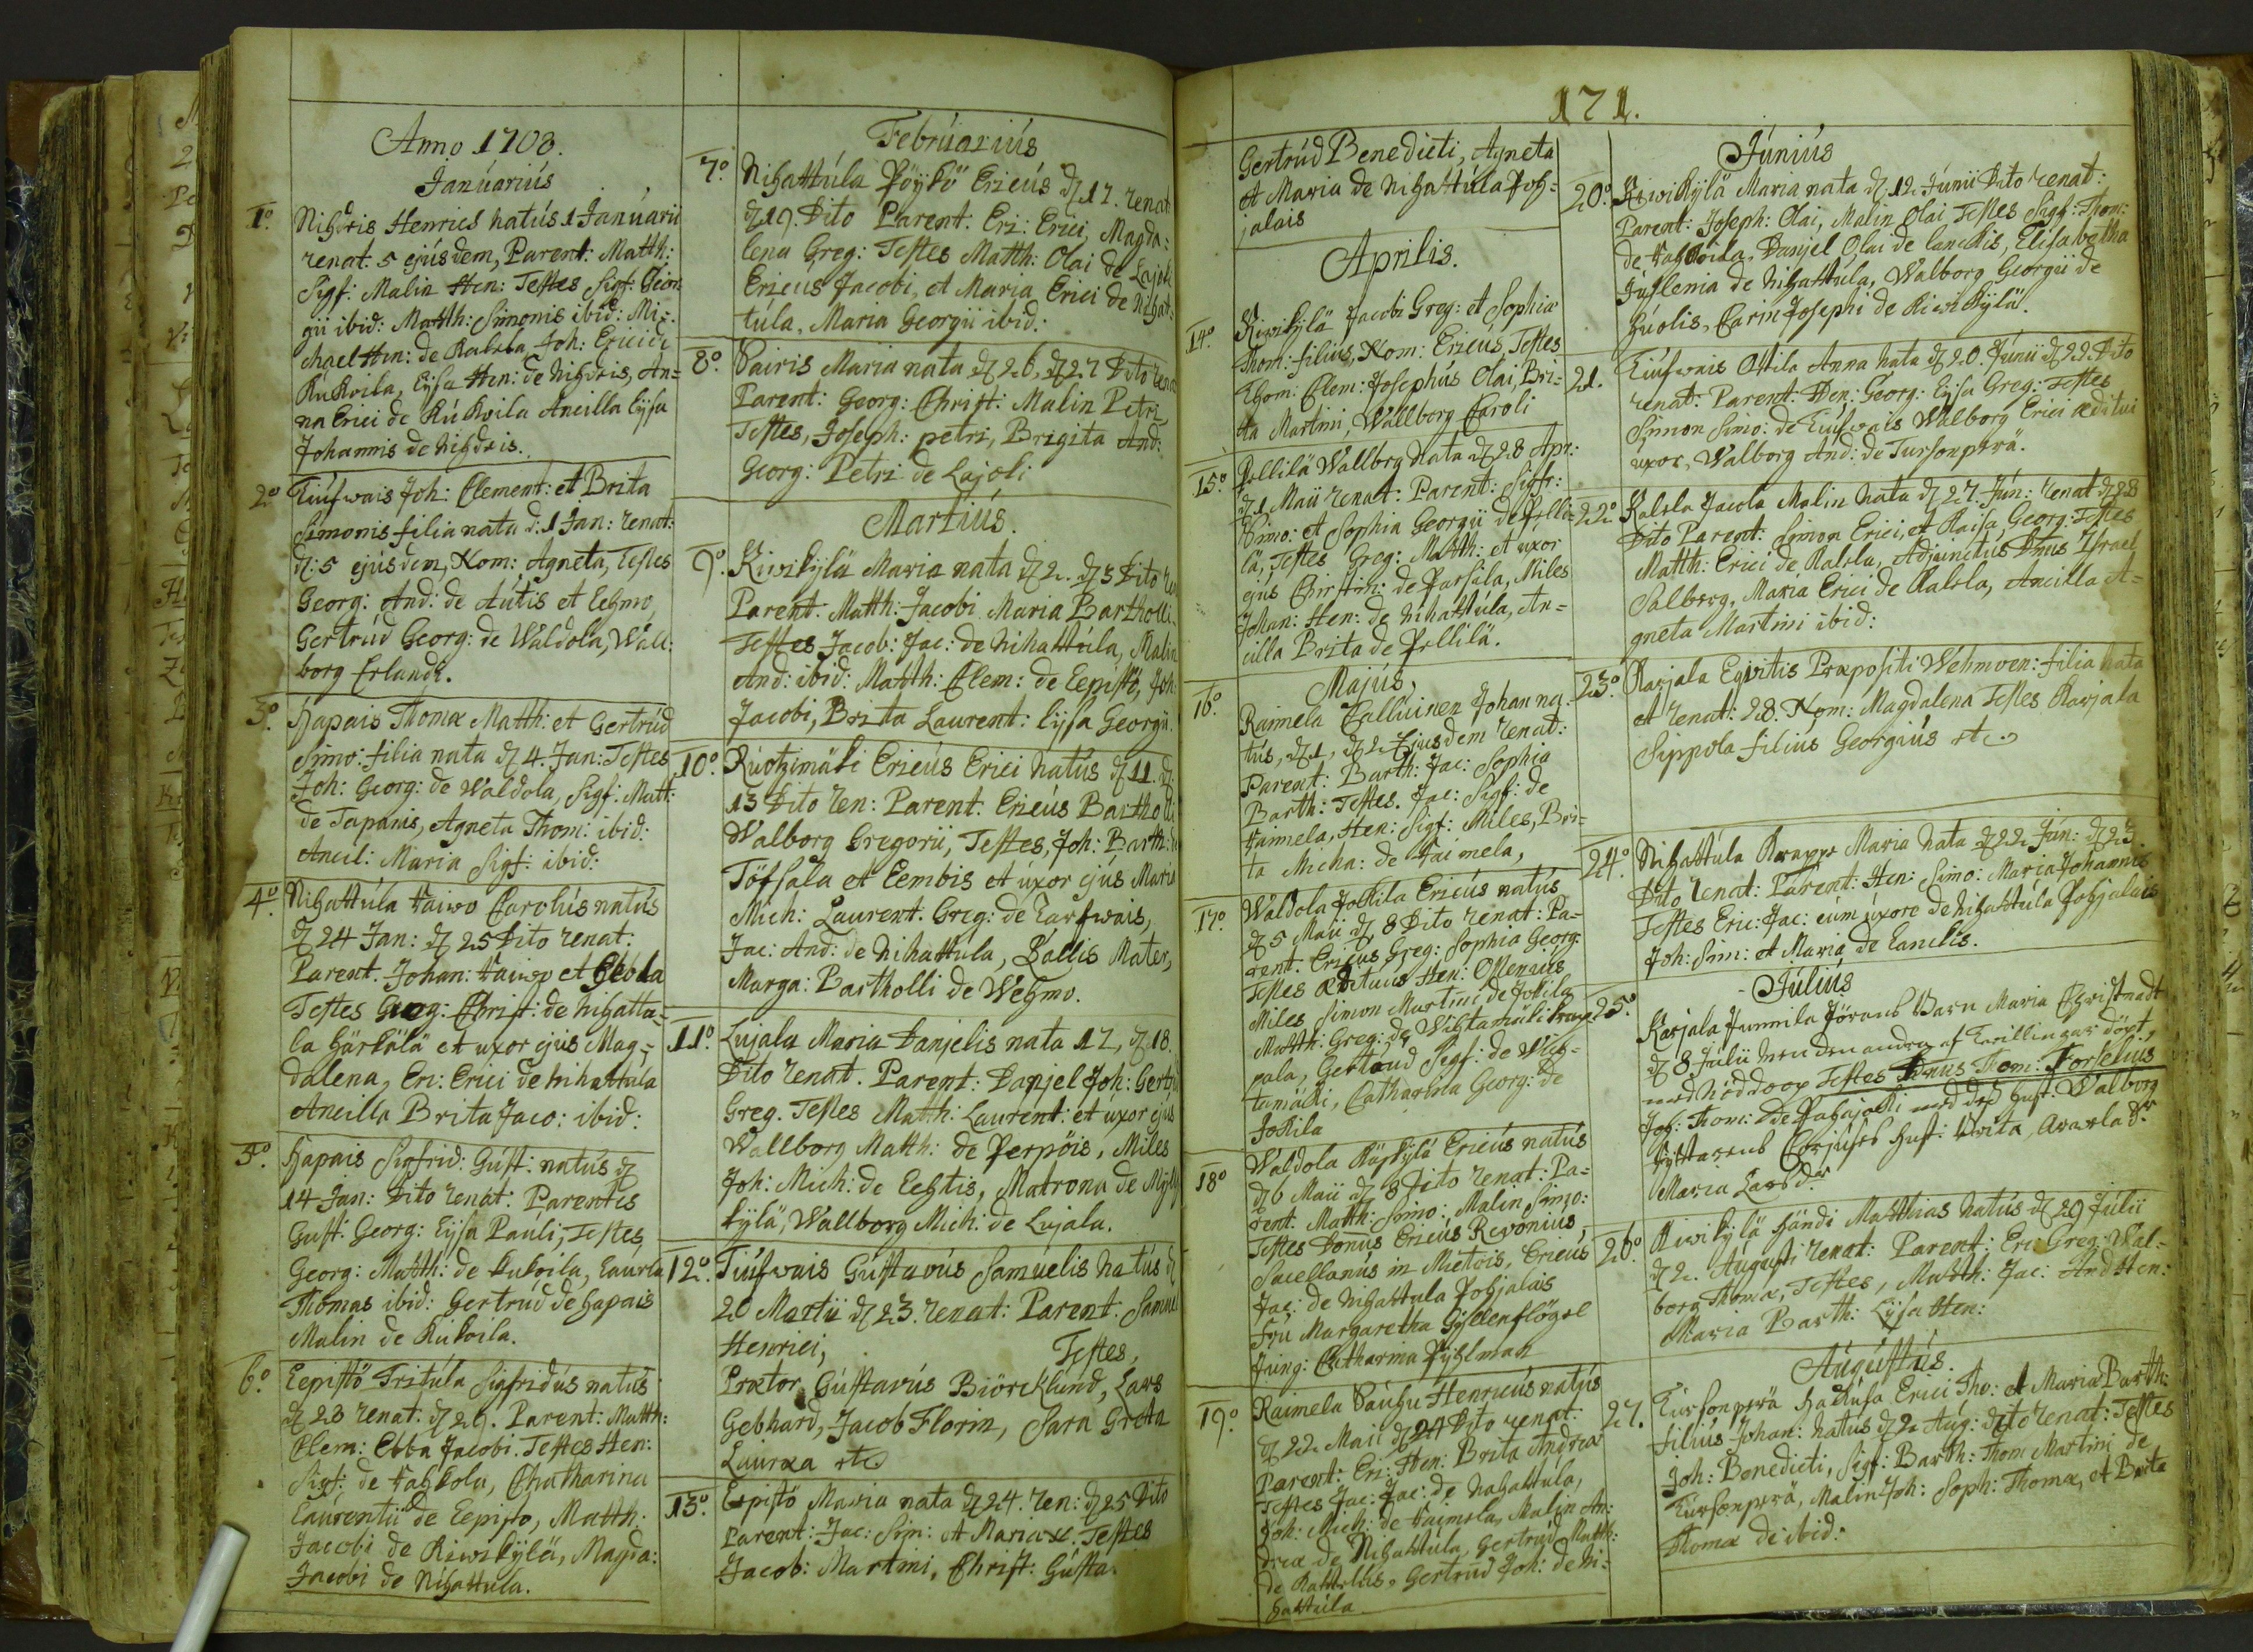 Anno 1703.
Januarius
1º. Nihdris Henrics natus 1 Januarii
renat. 5 ejusdem, Parent: Matth:
Sigf: Malin Hen: Testes Sigf: Geor
gii ibid: Matth: Simonis ibid: Mi=
chael Hen: de Kalela, Joh: Erici de
Kukoila, Lysa Hen: de Nihdris, An=
na Erici de Kukoila Ancilla Lysa
Johannis de Nihdris.
2º Tiuswais Joh: Clement: et Brita
Simonis filia nata d: 1 Jan: renat:
d: 5 ejusdem, Nom: Agneta, Testes
Georg: And: de Autis et Lehmo,
Gertrud Georg: de Waldola, Wall:
borg Erlands.
3º. Hapais Thomæ Matth: et Gertrud
Simo: filia nata d 4. Jan: Testes
Joh: Georg: de Waldola, Sigf: Matt:
de Tapanis, Agneta Thom: ibid:
Ancil: Maria Sigf: ibid:
4º. Nihattula Raiwo Carolus natus
d 24 Jan: d 25 Dito renat:
Parent. Johan: Raiwo et
Testes Georg: Christ: de Nihatta=
la Härkälä et uxor ejus Mag=
dalena, Eri: Erici de Nihattula
Ancilla Brita Jaco: ibid:
5º Hapais Sigfrid: Gust: natus d
14 Jan: Dito renat: Parentes
Gust: Georg: Lysa Pauli, Testes,
Georg: Matth: de Kukoila, Laurla
Thomas ibid: Gertrud de Hapais
Malin de Kukoila.
6º. Eepistö Tritula Sigfridus natus
d 28 renat: d 29. Parent: Matth:
Clem: Ebba Jacobi. Testes Hen:
Sigf: de Kahkola, Chatharina
Laurentii de Eepisto, Matth:
Jacobi de Kiwikylä, Magda:
Jacobi de Nihattula.
Februarius
7º. Nihattula Pöykö Ericus d 17. renat
d 19. Dito Parent: Eri: Erici, Magda:
lena Greg: Testes Matth: Olai de Lajoki
Ericus Jacobi, et Maria Erici de Nihat:
tula, Maria Georgii ibid:
8º. Pairis Maria nata d 26, d 27 Dito rena
Parent: Georg: Christ: Malin Petri
Testes, Joseph: petri, Brigita And:
Georg: Petri de Lajoki
Martius.
9º. Kiwikylä Maria nata d 2. d 3 Dito re
Parent: Matth: Jacobi Maria Bartholli:
Testes Jacob: Jac: de Nihattula, Malin
And: ibid: Matth: Clem: de Eepistö, Joh:
Jacobi, Brita Laurent: Lysa Georgii.
10º. Ruotzimäki Ericus Erici natus d 11. d
13 Dito ren: Parent. Ericus Bartholli
Walborg Gregorii, Testes, Joh: Barth: de
Töfsala et Eembis et uxor ejus Maria
Mich: Laurent. Greg: de Tarswais,
Jac: And: de Nihattula, Pallis Mater,
Marga: Bartholli de Wehmo.
11º Lujala Maria Danjelis nata 17, d 18.
Dito renat. Parent: Danjel Joh: Gertr
Greg. Testes Matth: Laurent: et uxor ejus
Wallborg Matth: de Perpöis, Miles
Joh: Mich: de Eehtis, Matrona de Mylly
kylä, Wallborg Mich: de Lujala.
12º. Tiuswais Gustavus Samuelis natus d
20 Martii d 23. renat: Parent: Samuel
Henrici, Testes,
Prætor Gustavus Biörcklund, Lars
Gebhard, Jacob Florin, Sara Greta
Laurxa etc
13º. Eepistö Maria nata d 24. ren: d 25 Dito
Parent: Jac: Sim: et Maria x. Testes
Jacob: Martini, Christ: Gusta
171.
Gertrud Benedicti, Agneta
et Maria de Nihattula Poh=
jalais
Aprilis.
14º Kiwikylä Jacobi Greg: et Sophia
Thom: filius, Nom: Ericus, Testes
Thom: Clem: Josephus Olai, Bri=
tta Martini, Wallborg Caroli
15º. Pellilä Wallborg nata d 28 Apr:
d 1 Maii renat: Parent: Sigfr:
Simo: et Sophia Georgii de Pelli=
lä, Testes Greg: Matth: et uxor
ejus Christin: de Parsila, Miles
Johan: Hen: de Nihattula, An=
cilla Brita de Pellilä.
Majus,
16º. Raimela Calluinen Johan na:
tus, d 1, d 2 Ejusdem renat:
Parent: Barth: Jac: Sophia
Barth: Testes. Jac: Sigf: de
Raimela, Hen: Sigf: Miles, Bri=
ta Micha: de Raimela,
17º. Waldola Jokila Ericus natus
d 5 Maii d 8 Dito renat: Pa=
rent. Ericus Greg: Sophia Georg:
Testes Ædituus Hen:
Miles Simon Martini de Jokila
Matth: Greg: de Wihtamäki
pala, Gertrud Sigf: de Wih=
tamäki, Catharina Georg: de
Jokila
18º Waldola Käpkylä Ericus natus
d 6 Maii d 8 Dito renat: Pa=
rent. Matth: Simo: Malin Simo:
Testes Donus Ericus Revonius,
Sacellanus in Mietois, Ericus
Jac: de Nihattula Pohjalais
Fru Margaretha Gyllenflögel
Jung: Chatharina Pyhlman
19º Raimela Sauhu Henricus natus
d 22. Maii d 24 Dito renat:
Parent: Eri: Hen: Brita Andreæ
Testes Jac: Jac: de Nahattula,
Joh: Mich: de Raimela, Malin An:
dreæ de Nihattula, Gertrud Matth:
de Kattelus, Gertrud Joh: de Ni=
hattula
Junius
20º. Kiwikylä Maria nata d. 12 Junii Dito renat:
Parent: Joseph: Olai, Malin Olai Testes Sigf: Thom:
de Kahkoila, Danjel Olai de Lanckis, Elisabetha
Juslenia de Nihattula, Walborg Georgii de
Huolis, Carin Josephi de Kiwikylä.
21. Tiuswais Ottila Anna nata d 20. Junii d 22 Dito
renat: Parent: Hen: Georg: Lysa Greg: Testes
Simon Simo: de Tiuswais Walborg Erici æditui
uxor, Walborg And: de Tursonperä.
22º Kalela Jacola Malin nata d 27. Jun: renat d 28
Dito Parent: Simon Erici, et Kaisa Georg: Testes
Matth: Erici de Kalela, Adjunctus Dnus Israel
Salberg, Maria Erici de Kalela, Ancilla A=
gneta Martini ibid:
23º. Karjala Eqvitis Præpositi Wehmoen: filia nata
et renat: 28. Nom: Magdalena Testes Karjala
Sippola filius Georgius etc.
24º. Nihattula Krappe Maria nata d 22 Jun: d 23
Dito renat: Parent: Hen: Simo: Maria Johannis
Testes Eric: Jac: cum uxore de Nihattula Pohjalais
Joh: Sim: et Maria de Lanckis.
Julius
25º. Karjala Junnila Jörans Barn Maria Christnadt
d 8 Julii men den andra af Twillingar döpt
med nöddoop Testes Dnus Thom: Forselius
Joh: Thom: de Pahajoki med des hust: Walborg
Ryttarens Corjuses hust: Brita, Awarla Dr
Maria Lars Dr
26º Kiwikylä Händi Matthias natus d 29 Julii
d 2. Augusti renat: Parent: Eric Greg: Wal=
borg Thomæ, Testes, Matth: Jac: And Hen:
Maria Barth: Lysa Hen:
Augustus.
27. Tursonperä Hakusa Erici Tho: et Maria Barth:
filius Johan: natus d 2 Aug: dito renat: Testes
Joh: Benedicti, Sigf: Barth: Thom Martini de
Tursonperä, Malin Joh: Soph: Thomæ, et Brita
Thomæ de ibid: